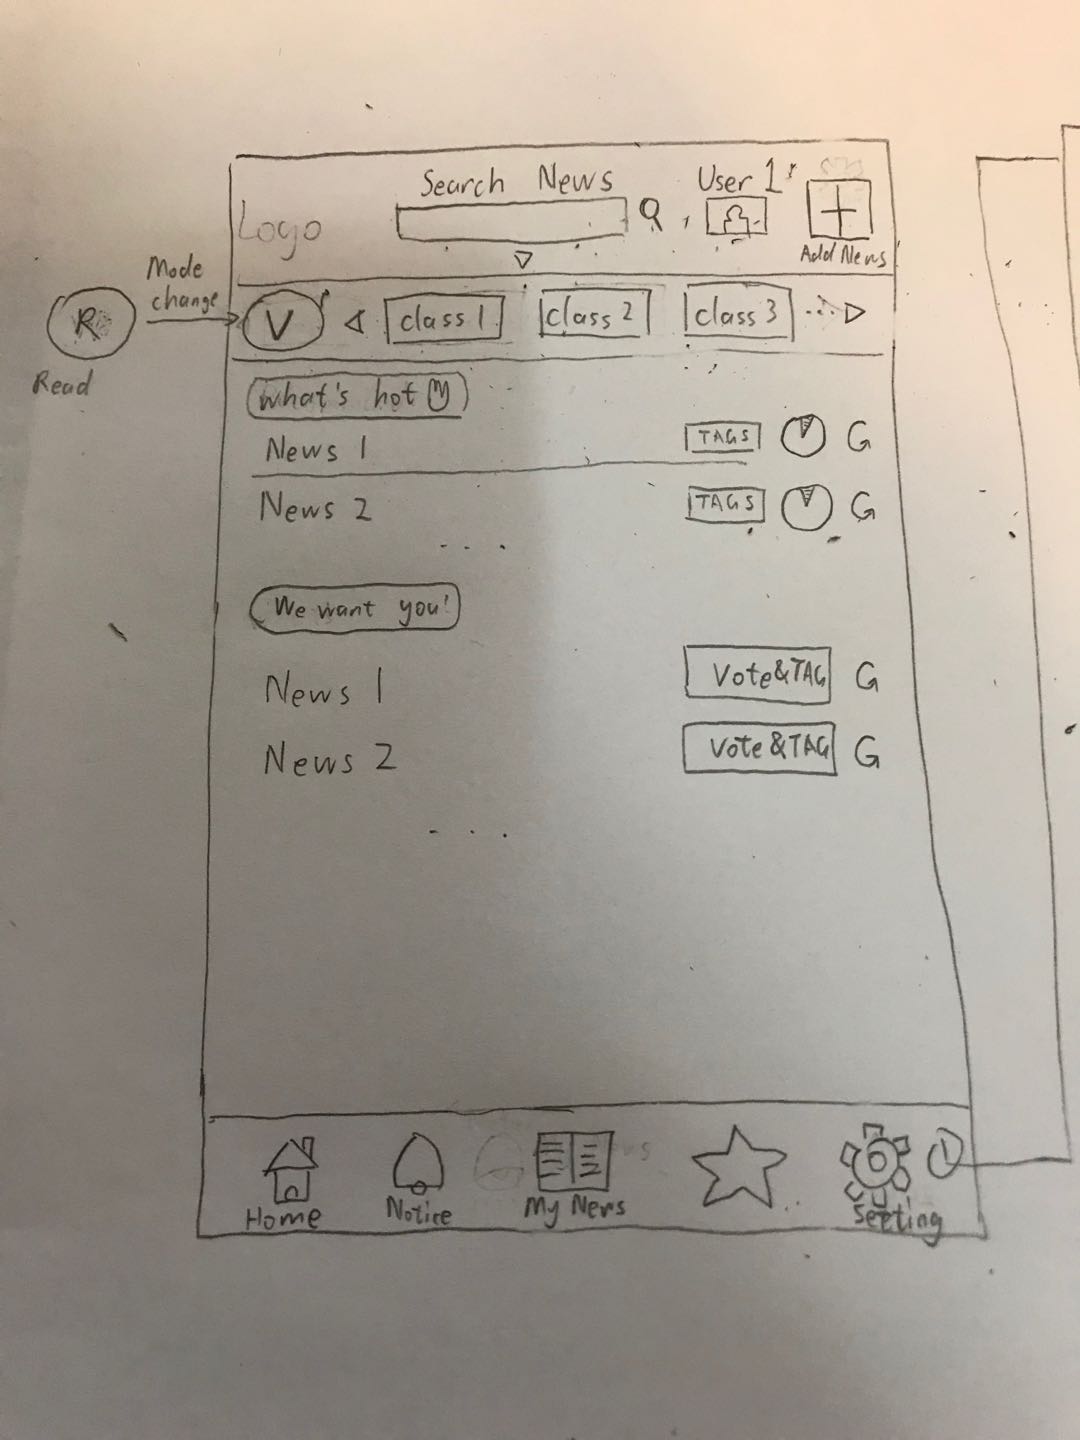 Search News
User 1
Logo
Add News
Mode
change
R
Read
V
class 1
class 2
class 3
what's hot
News 1
TAGS
G
News 2
TAGS
G
We want you!
News 1
Vote&TAG
G
News 2
Vote&TAG
G
Home
Notice
My News
Seeting
1